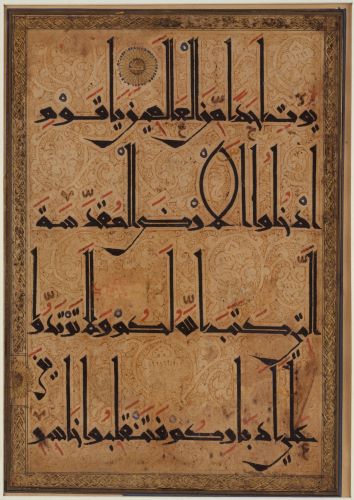 يؤت احدا من العالمين ياقوم
ادخلوا الارض المقدسة
التي كتب الله لكم ولا ترتدوا
على ادباركم فتنقلبوا خاسرين